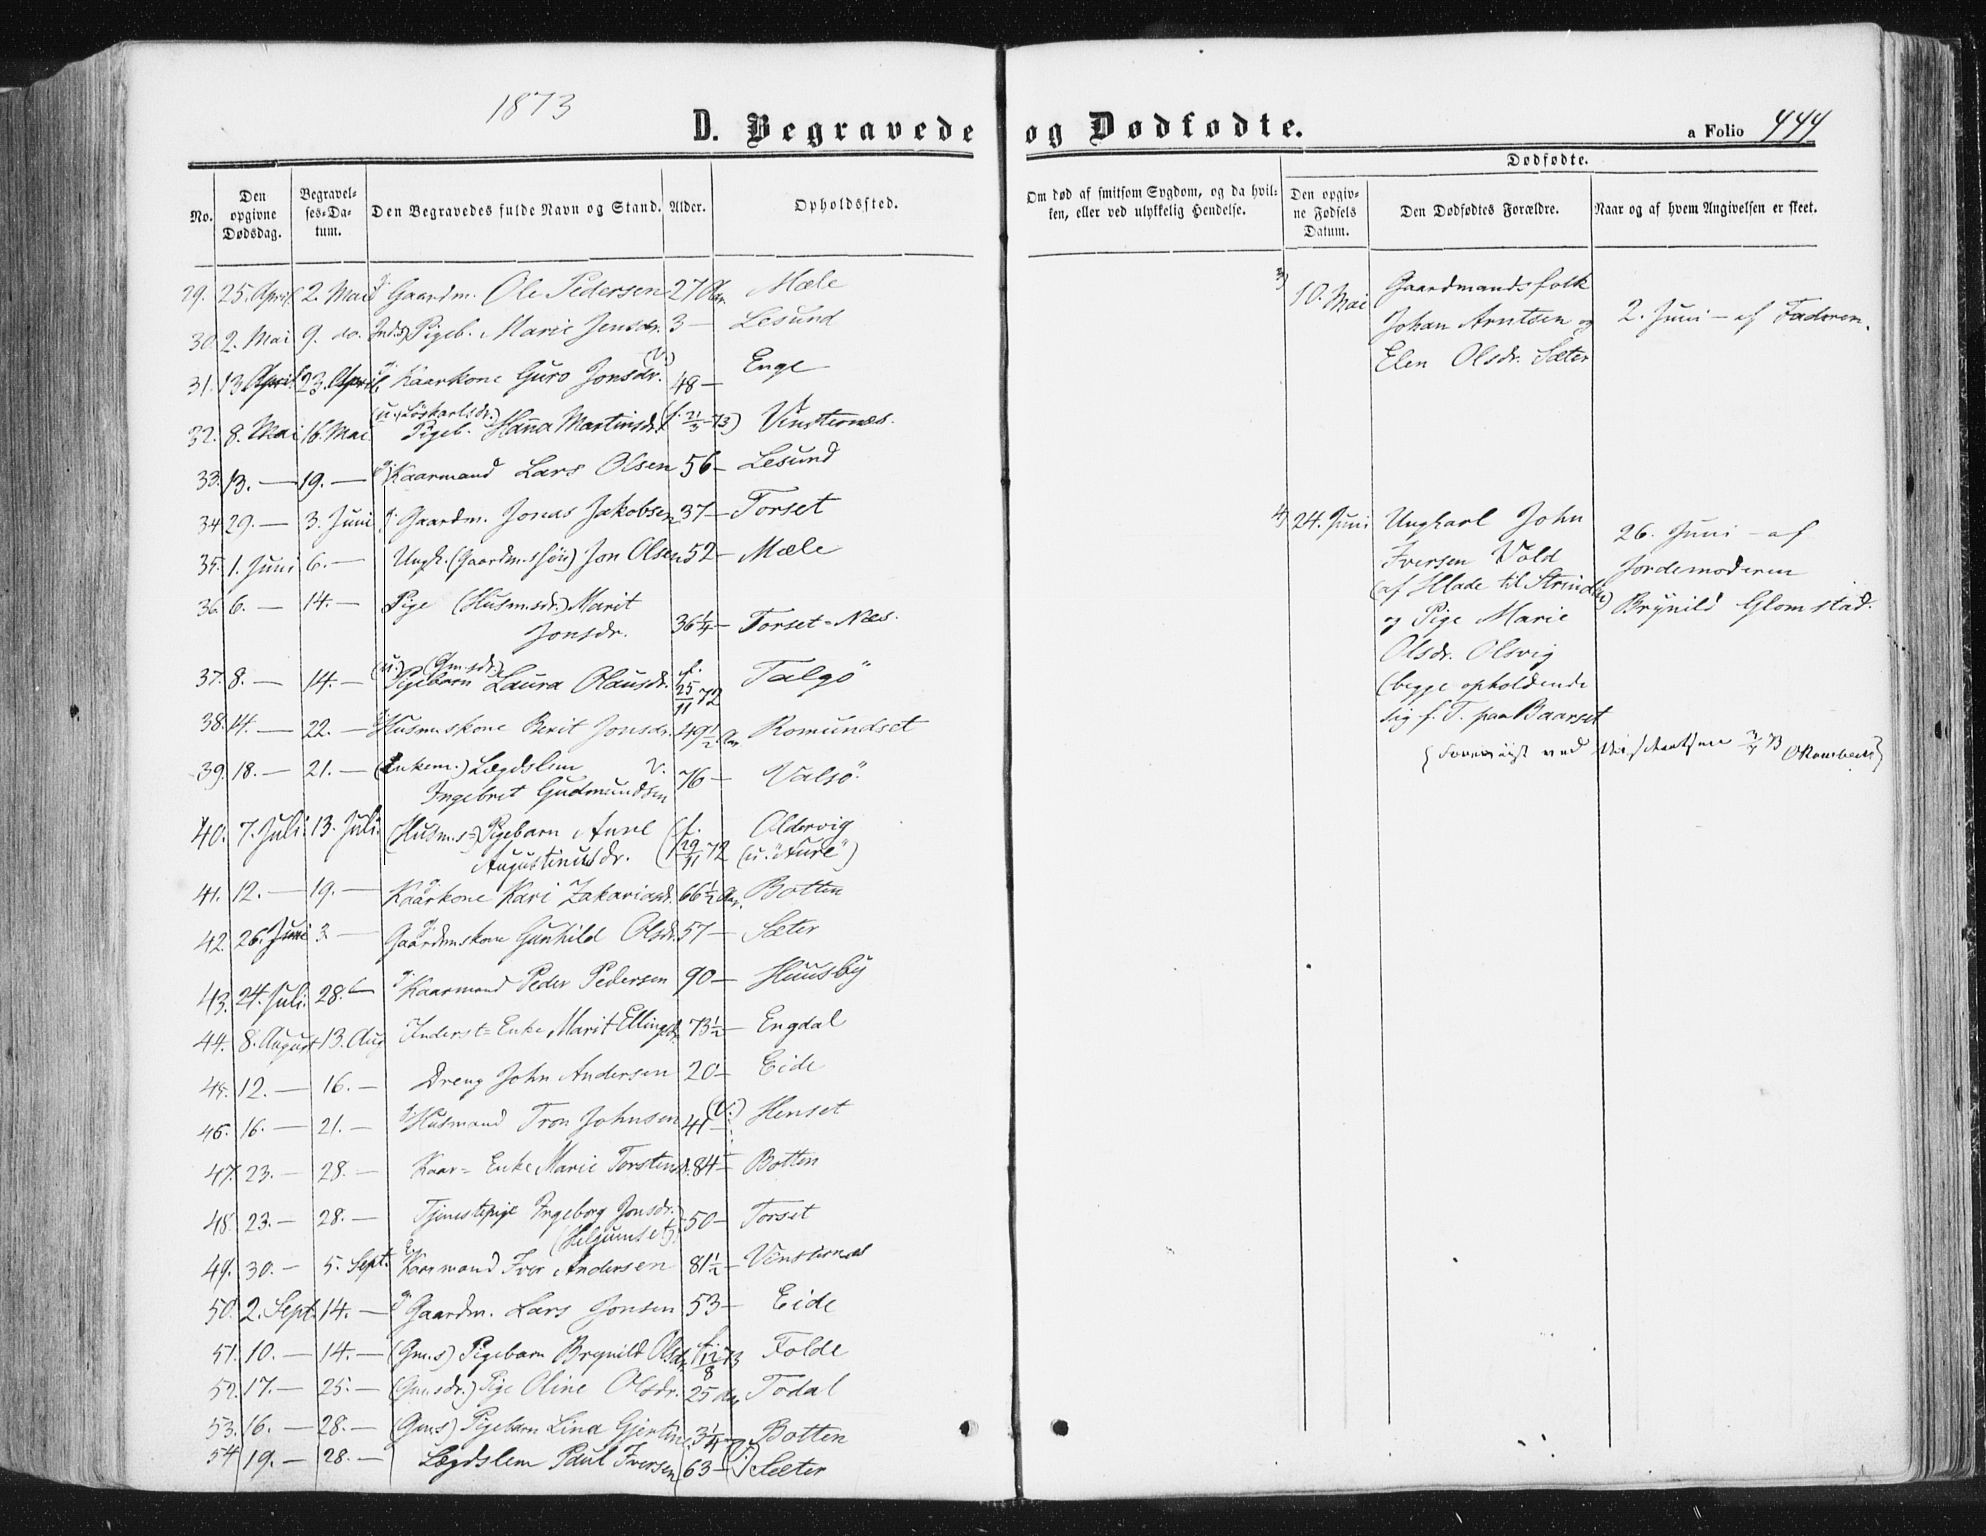 1873
D. Begravede og Dødfødte.
a Folio 444
No. Den opgivne Dødsdag. Begravelses-Datum. Den Begravedes fulde Navn og Stand. Alder. Opholdssted.
Om død af smitsom Sygdom, og da hvilken, eller ved ulykkelig Hendelse.
Dødfødte.
Den opgivne Fødsels Datum. Den Dødfødtes Forældre. Naar og af hvem Angivelsen er skeet.
29. 25. April 2. Mai Gaardm. Ole Pedersen 27 Aar Mæle
30. 2. Mai 9. do. Inds. Pigeb. Marie Jensdr. 3 — Lesund
31. 13 April 23. April Kaarkone Guro Jonsdr. (V.) 48 — Enge
32. 8. Mai 16. Mai (u. Löskarlsdr.) Pigeb. Hana Martinsdr. (f. 21/3 73) Vinsternæs.
33. 13. — 19. — Kaarmand Lars Olsen 56 — Lesund
34 29. — 3. Juni Gaardm. Jonas Jakobsen 37 — Torset
35. 1. Juni 6. — Ungk. (Gaardm. sön) Jon Olsen 52 — Mæle
36. 6. — 14. — Pige (Husm.sdr.) Marit
Jonsdr. 36 1/4 — Torset-Næs.
37. 8. — 14. — (u.) (Gm.sdr.) Pigebarn Laura Olausdr. f. 25/11 72 Talgö
38. 14. — 22. — Husm.skone Berit Jonsdr. 49 1/2 Aar Romundset
39. 18. — 21. — (Enkem.) Lægdslem V.
Ingebret Gudmundsen 76 — Valsö.
40. 7. Juli 13. Juli (Husm.s) Pigebarn Anne
Augustinusdr. (f. 29/11 72 Oldervig (u. "Aure")
41. 12. — 19. — Kaarkone Kari Zakariasdr. 66 1/2 Aar. Botten
42. 26. Juni 3 — Gaardmskone Gunhild Olsdr. 57 — Sæter
43. 24. Juli. 28. — Kaarmand Peder Pedersen 90 — Huusby
44. 8. August 13. Aug Inderst-Enke Marit Ellingsdr. 73 1/2 — Engdal
45. 12. — 16. — Dreng John Andersen 20 — Eide
46. 16. — 21. — Husmand Tron Johnsen 41 — (V.) Henset
47. 23. — 28. — Kaar-Enke Marie Torstensd. 84 — Botten
48. 23. — 28. — Tjenestepige Ingeborg Jonsdr.
(Helgumset) 50 — Torset
49. 30. — 5. Sept. Kaarmand Iver Andersen 81 1/2 — Vinsternæs
50. 2. Sept. 14. — Gaardm. Lars Jonsen 53 — Eide
51. 10. — 14. — (Gm.s) Pigebarn Brynild Olsdr. f. 12/8 73 Folde
52. 17. — 25. — (Gm.sdr.) Pige Oline Olsdr. 25 Aar Todal
53. 16. — 28. — (Gm.s) Pigebarn Lina Gjertine 3 1/4 — Botten
54 19. — 28. — Lægdslem Paul Iversen 63 — (V.) Sæter
3) 10. Mai Gaardmandsfolk
Johan Arntsen og
Elen Olsdr. Sæter
2. Juni — af Faderen.
4) 24. Juni Ungkarl John
Iversen Vold
(af Hlade til Strinden)
og Pige Marie
Olsdr. Olsvig
(begge opholdende
sig f. T. paa Baarset
26. Juni — af
Jordemoderen
Brynild Glomstad.
{Foreviist ved Visitatsen 3/7 73